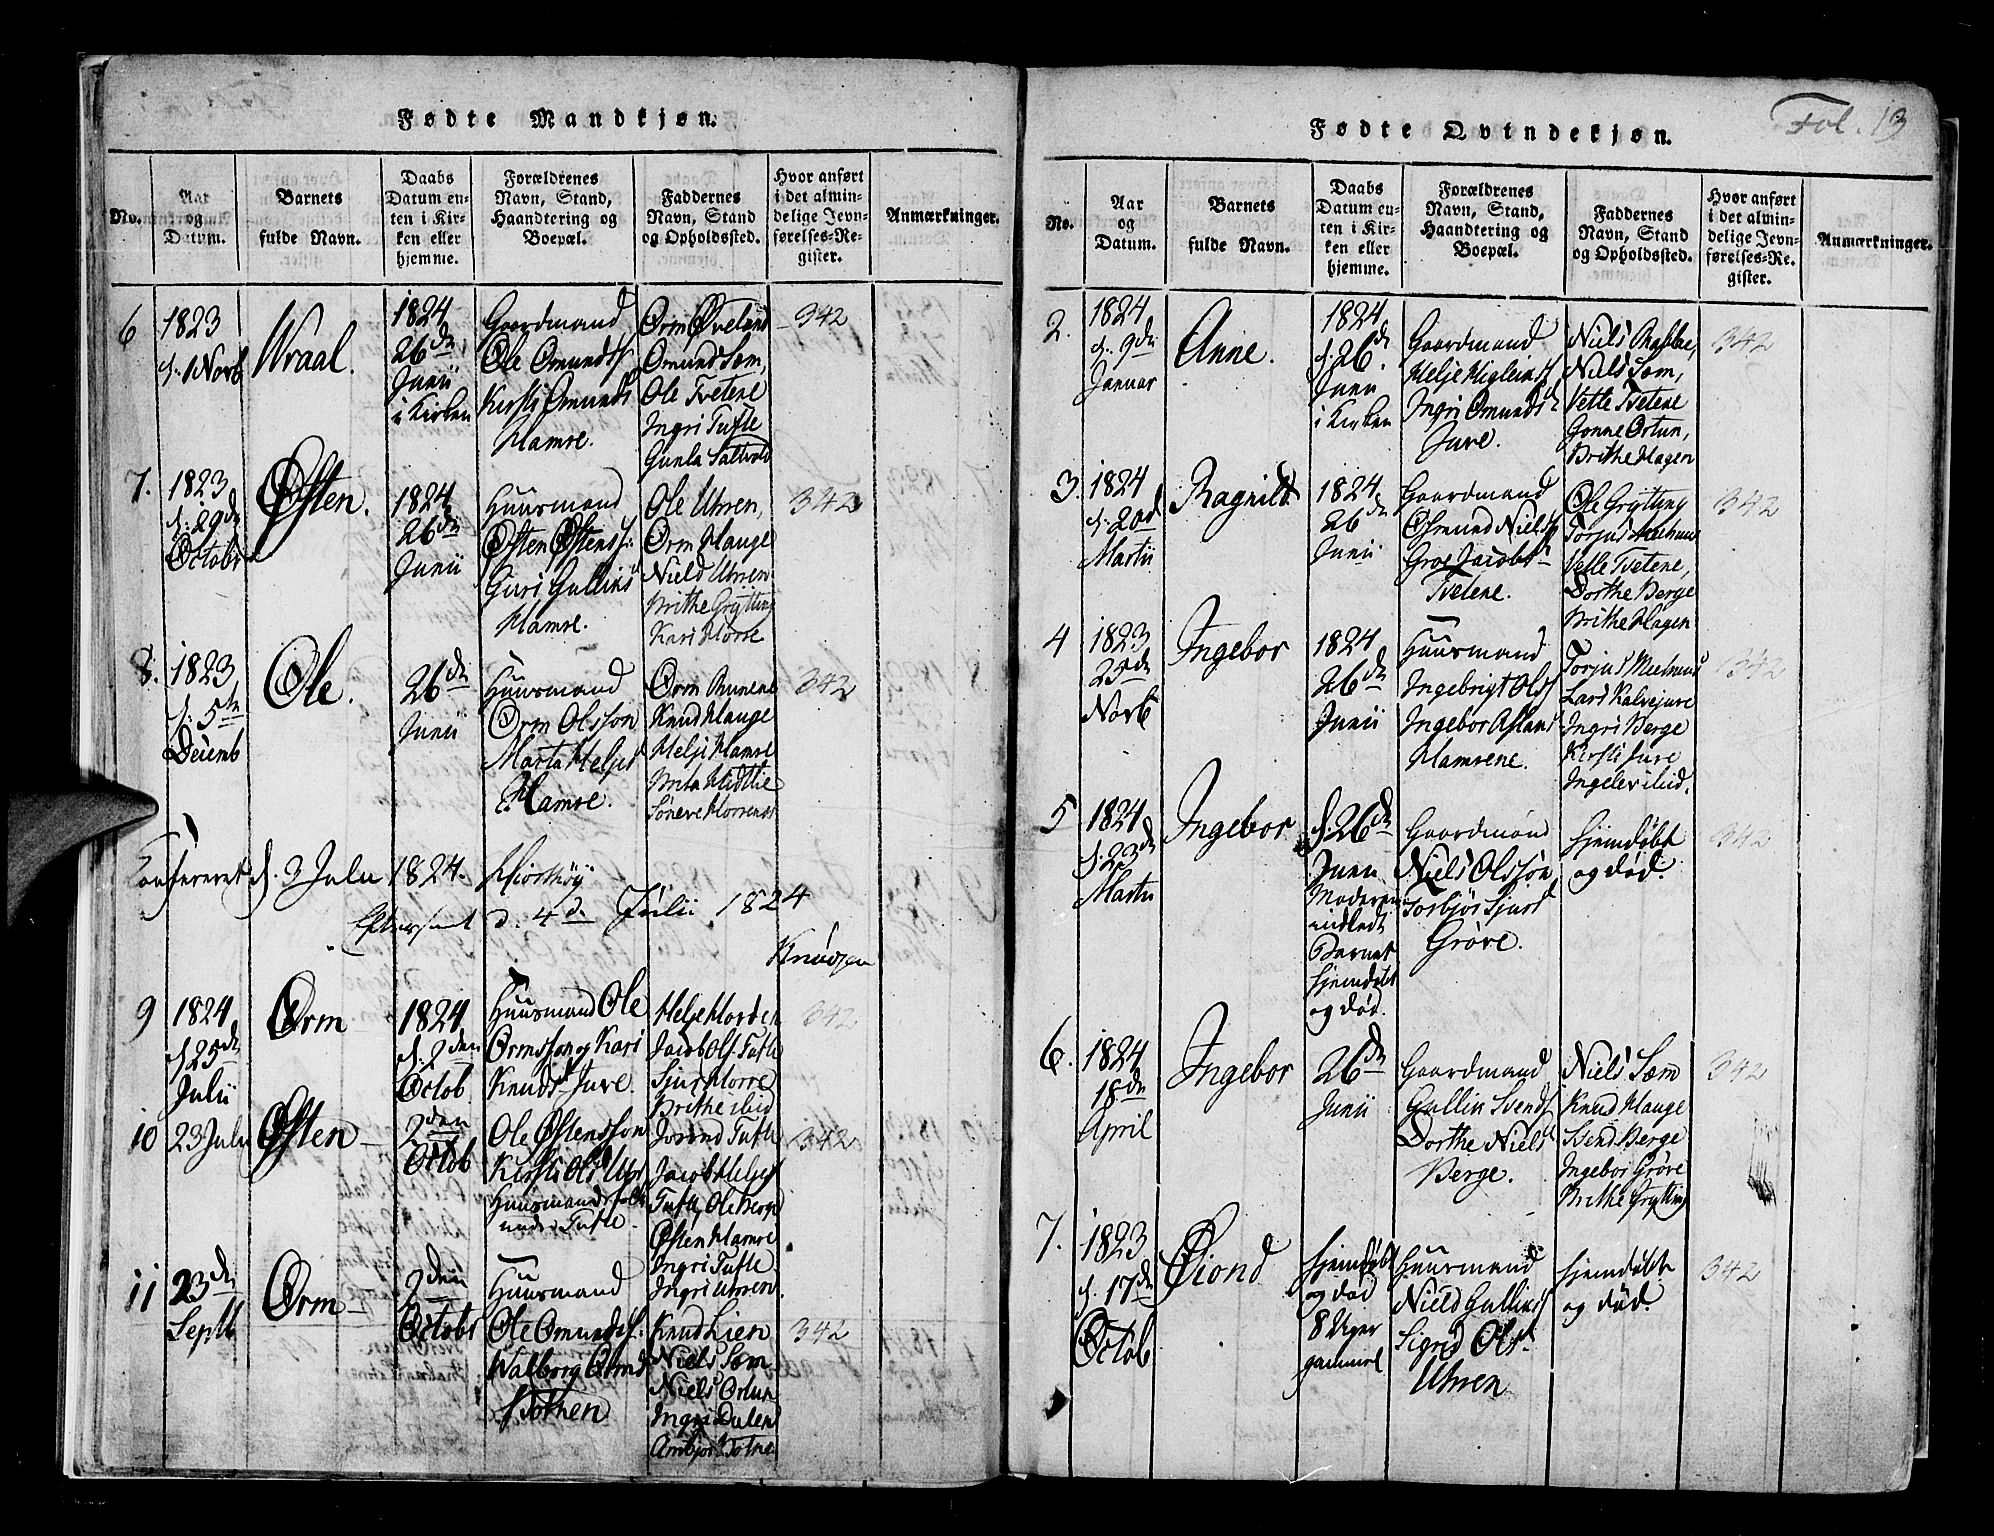 Fødte Mandkjøn.
No.
Aar
og
Datum.
Barnets
fulde Navn.
Daabs
Datum en-
ten i Kir-
ken eller
hjemme.
Forældrenes
Navn, Stand,
Haandtering og
Boepæl.
Faddernes
Navn, Stand
og Opholdssted.
Hvor anført
i det almin-
delige Jevn-
førelses-Re-
gister.
Anmærkninger.
6
1823
d. 1 Novb
Wraal.
1824
26de
Junii
i Kirken
Gaardmand
Ole Omunds
Kirsti Omunds
Hamre.
Orm Øveland
Omund Søm,
Ole Tvetene
Ingri Tufte
Gunla Saltvold
342
7.
1823
d. 29de
Octobr
Østen.
1824
26de
Junii
Huusmand
Østen Østens
Guri Gulliks
Hamre.
Ole Uhren,
Orm Hauge
Niels Uhren
Brithe Grytting
Kari Horre
342
8.
1823
d. 5te
Decemb
Ole.
26de
Junii
Huusmand
Orm Olsson
Marta Heljes
Hamre.
Orm
Knud Hauge
Helje Hamre
Brita Midtlie
342
Confereret d. 3 Julii 1824. Hiorthøy
Efterseet d. 4de Julii 1824
Knudsen
9
1824
d. 25de
Julii
Orm
1824
d. 2den
Octob
Huusmand Ole
Ormsson og Kari
Knuds Jure.
Helje
Jacob Ols Tufte
Sjur Horre
Brithe Liid
342
10
23 Julii
Østen
2den
Octob
Ole Østensson
Kirsti Ols
Huusmandsfolk
under Tufte.
Tufte
Jacob Heljes
Tufte, Ole Berge
Østen Hamre
Ingri Tufte
Ingri Uhren
342
11
23de
Septb
Orm
2den
Octobr
Huusmand
Ole Omunds
Walborg Orms
Knud Lien
Niels Søm
Niels Ortun
Ingri Dalen
342
Fødte Qvindekjøn.
Fol. 13
No.
Aar
og
Datum.
Barnets
fulde Navn.
Daabs
Datum en-
ten i Kir-
ken eller
hjemme.
Forældrenes
Navn, Stand,
Haandtering og
Boepæl.
Faddernes
Navn, Stand
og Opholdssted.
Hvor anført
i det almin-
delige Jevn-
førelses-Re-
gister.
Anmærkninger.
2.
1824
d. 9de
Januar
Anne.
1824
d. 26de
Junii
i Kirken
Gaardmand
Helje
Ingri Omunds
Jure.
Niels Rabbe,
Niels Søm,
Vette Tvetene
Gonne Ortun,
Brithe Hagen
342
3
1824
d. 20d
Martii
Ragnild
1824
26de
Junii
Gaardmand
Osmund Niels
Groe Jacobs
Tvetene.
Ole Grytting
Torjus
Vette Tvetene,
Dorthe Berge
Brithe Hagen
342
4
1823
25de
Novb
Ingebor
1824
26de
Junii
Huusmand
Ingebrigt Ols
Ingebor Aslaks
Hamrene.
Torjus
Lars Kalvejure
Ingri Berge
Kirsti Jure
342
5
1824
d. 23de
Martii
Ingebor
d. 26de
Junii
Moderen
indledt
Barnet
hjemdøbt
og død.
Gaardmand
Niels Olsson
Torbjør Sjurs
Grøve.
hjemdøbt
og død.
342
6.
1824
18de
April
Ingebor
26de
Junii
Gaardmand
Gullik Svends
Dorthe Niels
Berge.
Niels Søm
Knud Hauge
Svend Berge
Ingebor Grøve
Brithe Grytting
342
7.
1823
d. 17de
Octob
Øiond
hjemdøbt
og død
8 Uger
gammel
Huusmand
Niels Gulliks
Sigrid Ols
Uhren
hjemdøbt
og død.
342